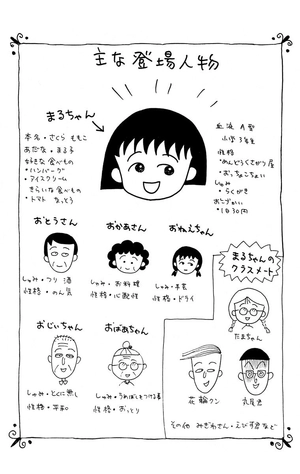 主な登場人物
まるちゃん
本名・さくら ももこ
あだな・まる子
好きな食べもの
・ハンバーグ
・アイスクリーム
きらいな食べもの
・トマト なっとう
血液 A型
小学 3年生
性格
・めんどうくさがり屋
・おっちょこちょい
しゅみ
・らくがき
おこづかい
・1日30円
おとうさん
しゅみ・つり 酒
性格・のん気
おかあさん
しゅみ・お料理
性格・心配性
おねえちゃん
しゅみ・手芸
性格・ドライ
まるちゃんの
クラスメート
たまちゃん
おじいちゃん
しゅみ・とくに無し
性格・平和
おばあちゃん
しゅみ・うめぼしをつける事
性格・おっとり
花輪クン
丸尾君
その他 みぎわさん・えびす君など